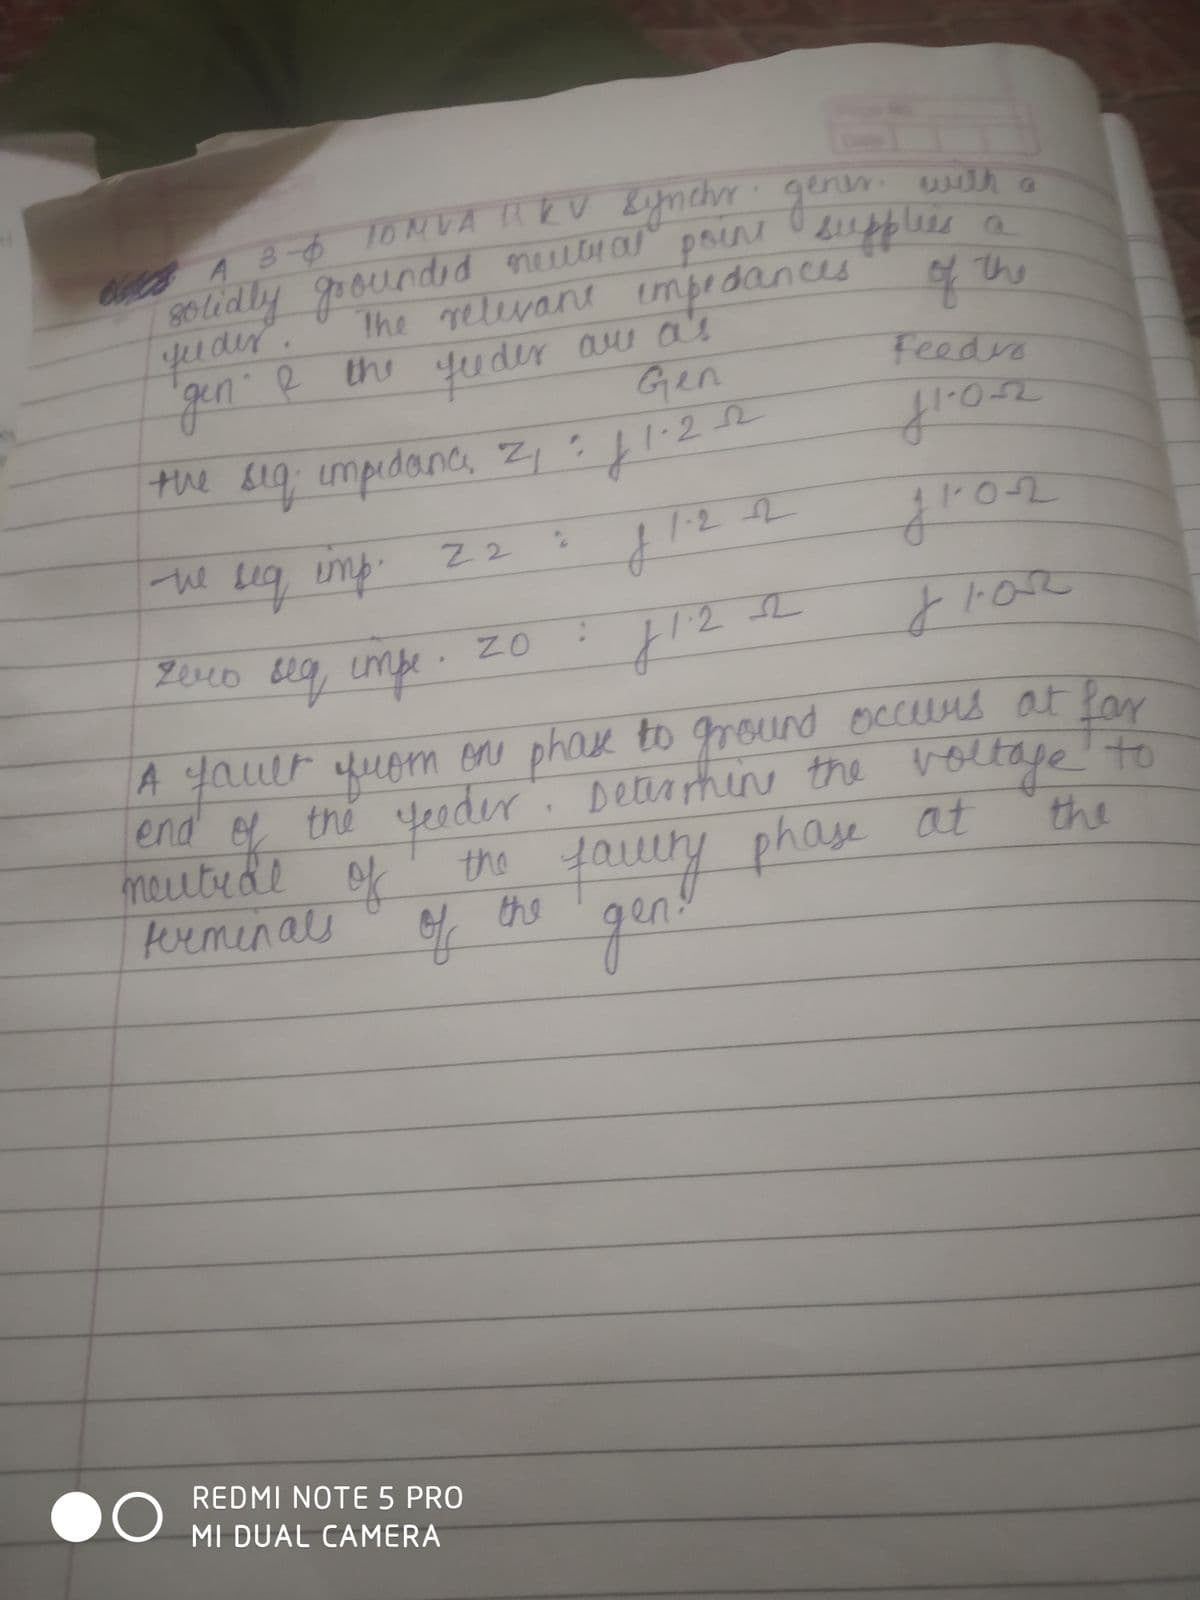 A 3-ф 10MVA 11KV Synchr. genr. with a
solidly grounded neutral point supplies a
feeder. The relevant impedances of the
gen. & the feeder are as
Gen Feeder
+ve seq. impedance Z1 : j1.2 Ω j1.0Ω
-ve seq imp. Z2 : j1.2 Ω j1.0Ω
zero seq impe. Z0 : j1.2 Ω j1.0Ω
A fault from one phase to ground occurs at far
end of the feeder. Determine the voltage to
neutral of the faulty phase at the
terminals of the gen.
REDMI NOTE 5 PRO
MI DUAL CAMERA